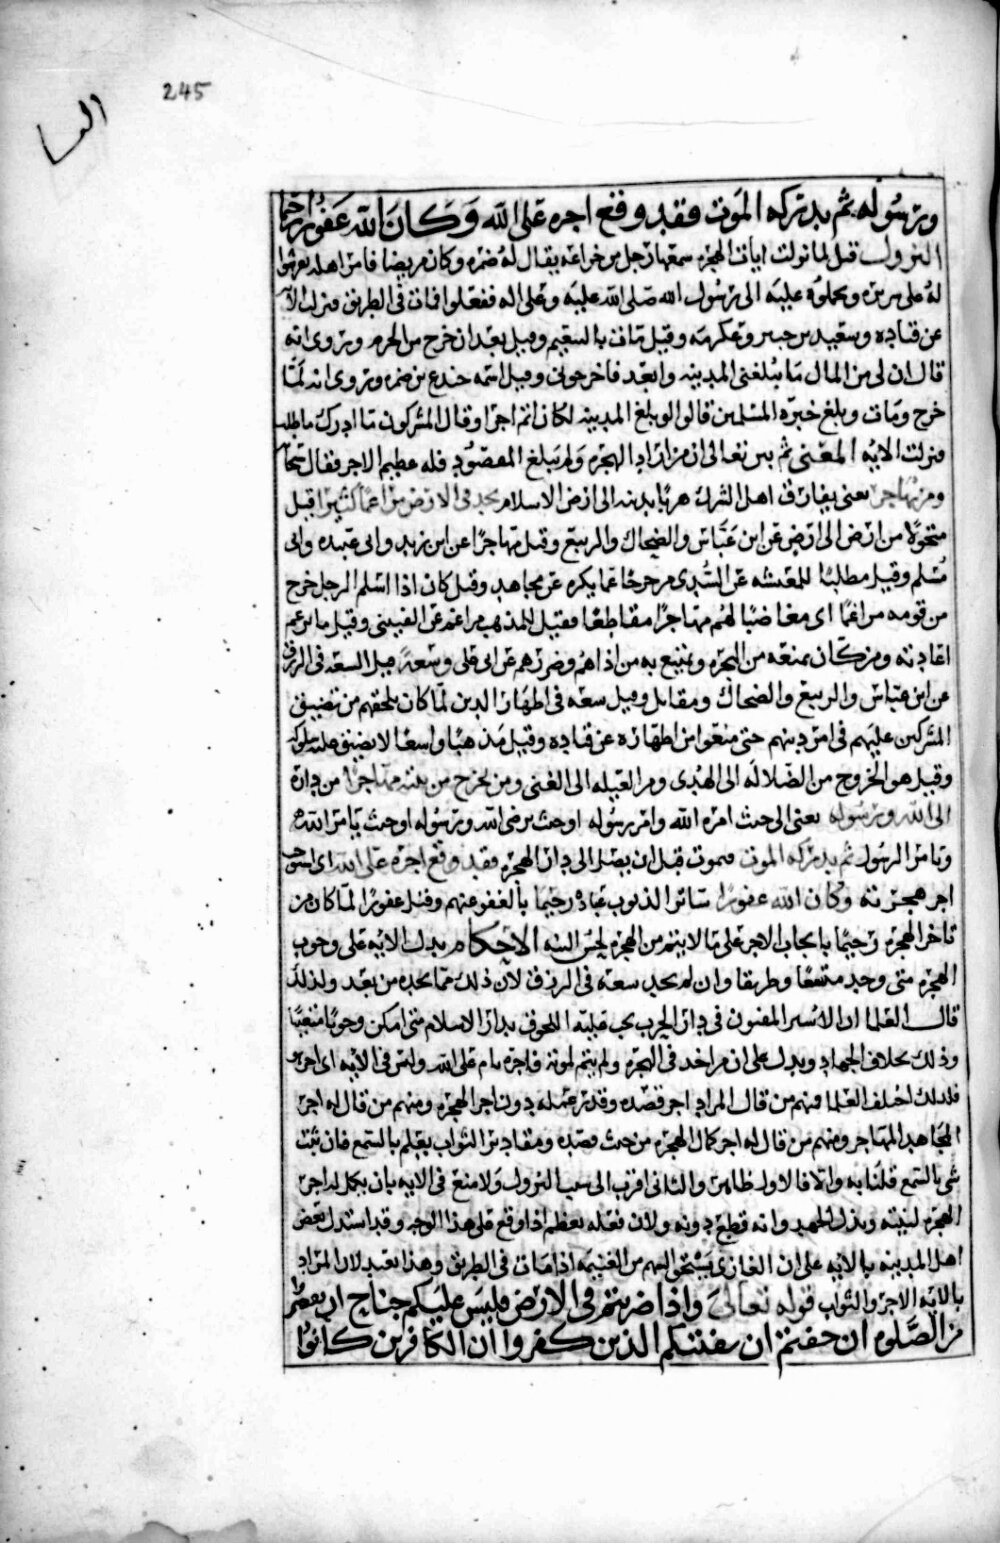 245
النسا
ورسوله ثم يدركه الموت فقد وقع اجره على الله وَكانَ الله غفورا رحيما
النزول قيل لما نزلت ايات الهجره سمعها رجل من خزاعه يقال له ضمره وكان مريضا فامر اهله ان يفرشوا
له على سريره ويحملوه عليه الى رسول الله صلى الله عليه وعلى اله ففعلوا فمات في الطريق فنزلت الآيه
عن قتاده وسعيد بن جبير وعكرمه وقيل مات بالتنعيم وقيل بعد ان خرج من الحرم وروى انه
قال ان لي من المال ما يبلغني المدينه وابعد فاخرجوني وقيل اسمه جندع بن ضمره وروى انه لمّا
خرج ومات وبلغ خبره المسلمين قالوا لو بلغ المدينه لكان اتم اجرا وقال المشركون ما ادرك ما طلب
فنزلت الايه المعنى ثم بين تعالى ان من اراد الهجره ولم يبلغ المقصود فله عظيم الاجر فقال سبحانه
ومن يهاجر يعنى يفارق اهل الشرك هربًا بدينه الى ارض الاسلام يجد في الارض مراغمًا كثيرًا قيل
متحولًا من ارض الى ارض عن ابن عبّاس والضحاك والربيع وقيل مهاجرًا عن ابن زيد وابى عبيده وابى
مسلم وقيل مطلبًا للمعيشه عن السُّدى متزحزحًا عما يكره عن مجاهد وقيل كان اذا اسلم الرجل خرج
من قومه مراغمًا اى مغاضبًا لهم مهاجرًا مقاطعًا فقيل للمذهب مراغم عن القتيبى وقيل ما يرغم
اعاديه ومن كان يمنعه من الهجره ويمتنع به من اذاهم وضررهم عن ابى على وسعة قيل السعه في الرزق
عن ابن عباس والربيع والضحاك ومقاتل وقيل سعه في اظهار الدين لما كان يلحقهم من تضييق
المشركين عليهم في امر دينهم حتى منعوا من اظهاره عن قتاده وقيل مذهبًا واسعًا لا يضيق عليه سلوكه
وقيل هو الخروج من الضلاله الى الهدى ومن العيله الى الغنى ومن يخرج من بيته مهاجرا من داره
الى الله ورسوله يعنى الى حيث امره الله وامر رسوله او حيث يرضى الله ورسوله او حيث يامر الله
ويامر الرسول ثم يدركه الموت فيموت قبل ان يصل الى دار الهجره فقد وقع اجره على الله اى استوجب
اجر هجرته وكان الله غفورًا ساتر الذنوب عباده رحيمًا بالعفو عنهم وقيل غفورًا لما كان من
تاخر الهجره رحيمًا بايجاب الاجر على ما لا يتم من الهجره لحسن النيه الاحكام يدل الايه على وجوب
الهجره متى وجد متسعًا وطريقا وان لم يجد سعه في الرزق لان ذلك مما يجده من بعد ولذلك
قال العلما ان الاسير المفتون في دار الحرب يجب عليه اللحوق بدار الاسلام متى امكن وجوبًا متعينًا
وذلك بخلاف الجهاد ويدل على ان من اخذ في الهجره ولم يتم لموته فاجره تام على الله وليس في الايه اى اجر هو
فلذلك اختلف العلما فمنهم من قال المراد اجر قصده وقدر عمله دون اجر الهجره ومنهم من قال له اجر
المجاهد المهاجر ومنهم من قال له اجر كمال الهجره من حيث قصده ومقادير الثواب يعلم بالسمع فان ثبت
شى بالسمع قلنا به والّا فالاول ظاهر والثانى اقرب الى سبب النزول ولا منع في الايه بان يكمل له اجر
الهجره لنيته وبذل الجهد وانه قطع دونه ولان فعله يعظم اذا وقع على هذا الوجه وقد استدل بعض
اهل المدينه بالايه على ان الغازى يستحق السهم من الغنيمه اذا مات في الطريق وهذا بعيد لان المراد
بالايه الاجر والثواب قوله تعالى وَاذا ضربتم في الارض فليس عليكم جناح ان تقصروا
من الصَّلوه ان خفتم ان يفتنكم الذين كفروا ان الكافرين كانوا